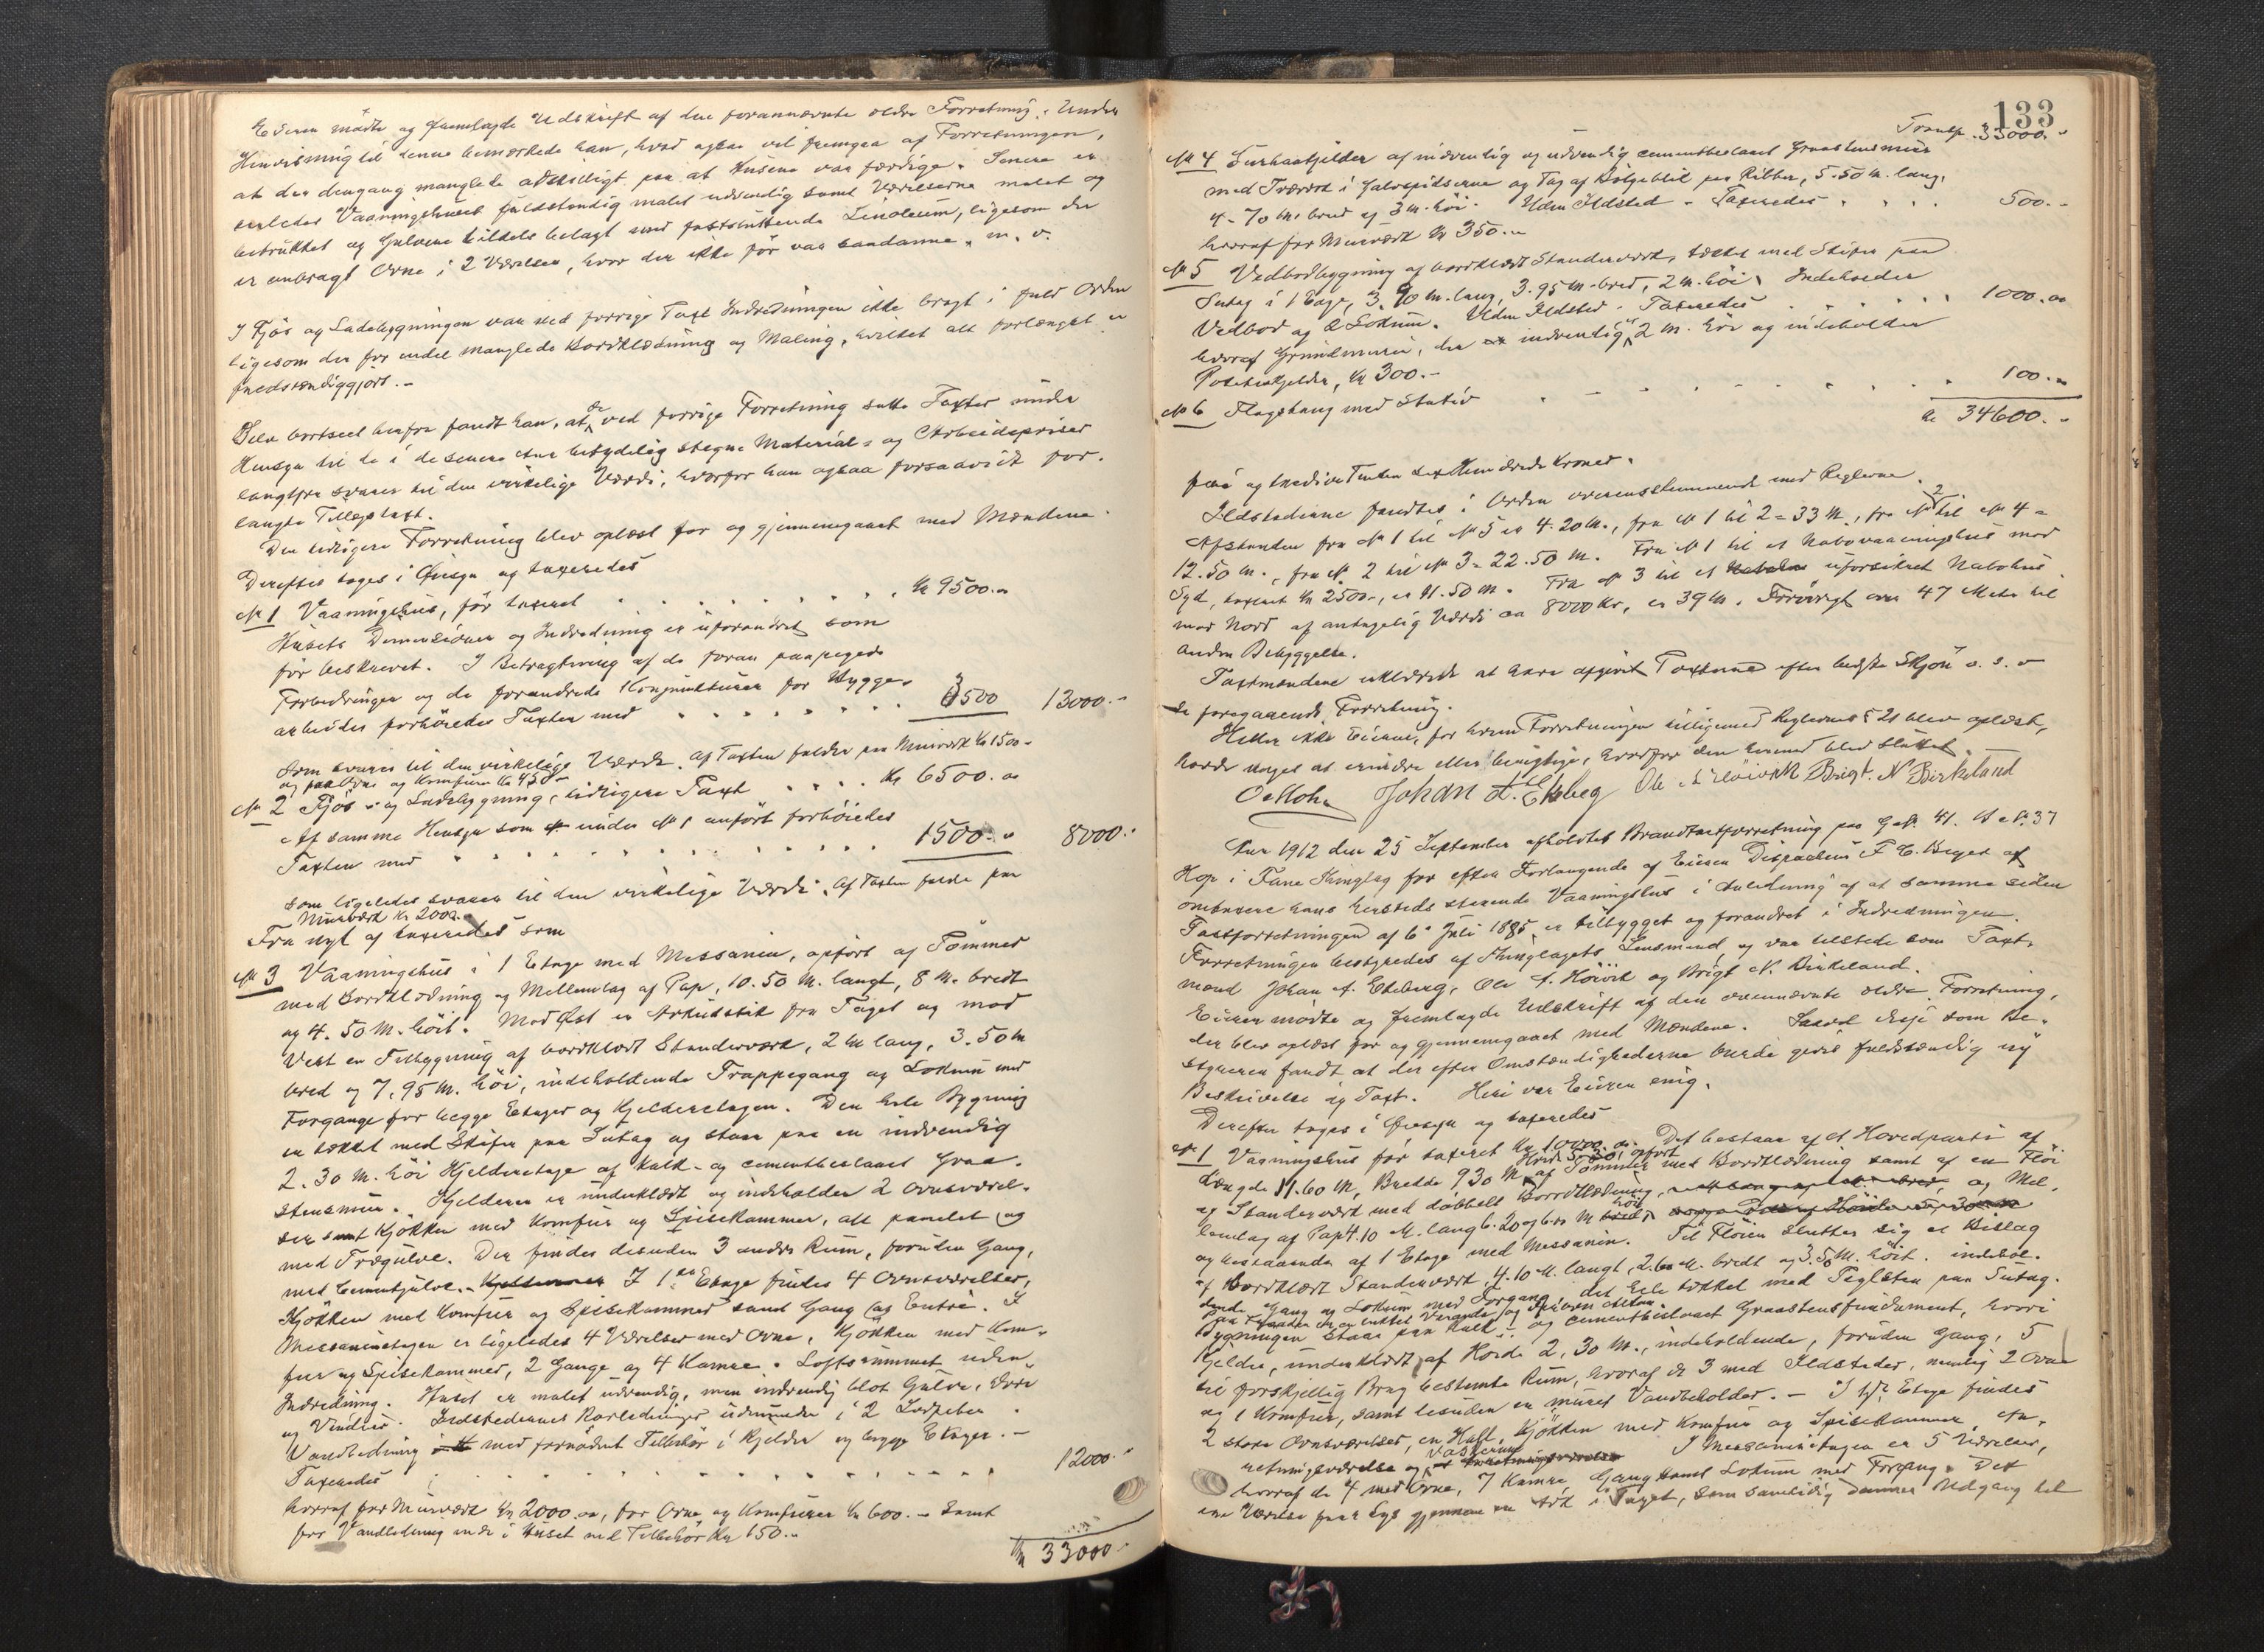 Eieren mødte og fremlagde Udskrift af den forannævnte ældre Forretning. Under
Henvisning til denne bemærkede han, hvad ogsaa vil fremgaa af Forretningen,
at der dengang manglede adskilligt paa at Husene var færdige. Senere er
saaledes Vaaningshuset fuldstændig malet udvendig samt Værelserne malet og
betrukket og Gulvene tildels belagt med fastsittende Linoleum, ligesom der
er anbragt Ovne i 2 Værelser, hvor der ikke før var saadanne, m. v.
I Fjøs og Ladebygningen var ved forrige Taxt Indredningen ikke bragt i fuld Orden
ligesom der for endel manglede Bordklædning og Maling, hvilket alt forlængst er
fuldstændiggjort. -
Selv bortseet herfra fandt han, at de ved forrige Forretning satte Taxter under
Hensyn til de i de senere Aar betydelig stegne Material- og Arbeidspriser
langtfra svarer til den virkelige Værdi, hvorfor han ogsaa forsaavidt for-
langte Tillægstaxt.
Den tidligere Forretning blev oplæst for og gjennemgaaet med Mændene.
Derefter toges i Øiesyn og taxeredes
No 1 Vaaningshus, før taxeret . . . . . . . Kr 9500.00
Husets Dimensioner og Indredning er uforandret som
før beskrevet. I Betragtning af de foran paapegede
Forbedringer og de forandrede Konjunkturer for Bygge-
arbeider forhøiedes Taxten med . . . . . . . 3500 13000.-
som svarer til den virkelige Værdi. Af Taxten falder paa Murværk Kr 1500-
og paa Ovne og Komfurer Kr 450-
No 2 Fjøs- og Ladebygning, tidligere Taxt . . . . Kr 6500.00
Af samme Hensyn som under No 1 anført forhøiedes
Taxten med . . . . . . . . . . . 1500.- 8000.-
som ligeledes svarer til den virkelige Værdi. Af Taxten falde paa
Murværk Kr 2000.-
Fra nyt af taxeredes som
No 3 Vaaningshus i 1 Etage med Messanin, opført af Tømmer
med Bordklædning og Mellemlag af Pap, 10.50 M. langt, 8 M. bredt
og 4.50 M. høit. Mod Øst er Arkudstik fra Taget og mod
Vest en Tilbygning af bordklædt Standerværk, 2 M lang, 3.50 M
bred og 7.95 M. høi, indeholdende Trappegang og Lokum med
Forgange for begge Etager og Kjelderetagen. Den hele Bygning
er tækket med Skifer paa Sutag og staar paa en indvendig
2.30 M. høi Kjelderetage af kalk- og cementbeslaaet Graa-
stensmur. Kjelderen er underklædt og indeholder 2 Ovnsværel-
ser samt Kjøkken med Komfur og Spisekammer, alt panelet og
med Trægulve. Der findes desuden 3 andre Rum, foruden Gang,
med Cementgulve. I 1ste Etage findes 4 Ovnsværelser,
Kjøkken med Komfur og Spisekammer samt Gang og Entrè. I
Messaninetagen er ligeledes 4 Værelser med Ovne, Kjøkken med Kom-
fur og Spisekammer, 2 Gange og 4 Kamre. Loftsrummet uden
Indredning. Huset er malet udvendig, men indvendig blot Gulve, Døre
og Vinduer. Ildstedernes Rørledninger udmunder i 2 Lofpiber.
Vandledning med fornødent Tilbehør i Kjelder og begge Etager. -
Taxeredes . . . . . . . . . . . 12000.-
hvoraf for Murværk Kr 2000.00, for Ovne og Komfurer Kr 600.- samt
for Vandledning inde i Huset med Tilbehør Kr 150.-
Kr 33000.-
133
Transp. 33000.-
No 4 Surhaatjelder af indvendig og udvendig cementbeslaaet Graastensmur
med Træværk i Gavlspidserne og Tag af Bølgeblik paa Ribber, 5.50 M. lang,
4.70 M. bred og 3 M. høi. Uden Ildsted. Taxeredes . . . . 500.-
hvoraf for Murværk Kr 350.-
No 5 Vedbodbygning af bordklædt Standerværk, tækket med Skifer paa
Sutag i 1 Etage, 3.90 M. lang, 3.95 M. bred, 2 M. høi. Indeholder
Vedbod og 2 Lokum. Uden Ildsted. Taxeredes . . . . . . 1000.00
hvoraf Grundmuren, der indvendig er 2 M. høi og indeholder
Potetkjelder, Kr 300.-
No 6 Flagstang med Stativ . . . . . . . . 100.-
Kr 34600.-
fire og tredive Tusen sex Hundrede Kroner.
Ildstederne fandtes i Orden overensstemmende med Reglerne.
Afstanden fra No 1 til No 5 er 4.20 M., fra No 1 til 2 = 33 M., fra No 2 til No 4 =
12.50 M., fra No 2 til No 3 = 22.50 M. Fra No 1 til et Nabovaaningshus mod
Syd, taxeret Kr 2500-, er 11.50 M. Fra No 3 til et uforsikret Nabohus
mod Nord af antagelig Værdi ca 8000 Kr, er 39 M. Forøvrigt over 47 Meter til
anden Bebyggelse.
Taxtmændene erklærede at have afgivet Taxterne efter bedste Skjøn o. s. v
foregaaende Forretning.
Heller ikke Eieren, for hvem Forretningen tilligemed Reglernes § 21 blev oplæst,
havde noget at erindre eller berigtige, hvorfor den hermed blev sluttet.
Johan A. Ekeberg Ole A Høivik Brigt. N Birkeland
Aar 1912 den 25 September afholdtes Brandtaxtforretning paa G. No. 41. B. No. 37
Hop i Fane Thinglag for efter Forlangende af Eieren Dispachør F. C. Beyer at
omtaxere hans hersteds staaende Vaaningshus i Anledning af at samme siden
Taxtforretningen af 6. Juli 1885 er tilbygget og forandret i Indredningen.
Forretningen bestyredes af Thinglagets Lensmand, og var tilstede som Taxt-
mænd Johan A. Ekeberg, Ole A. Høivik og Brigt N. Birkeland.
Eieren mødte og fremlagde Udskrift af den ovennævnte ældre Forretning,
der blev oplæst for og gjennemgaaet med Mændene. Saavel disse som Be-
styreren fandt at der efter Omstændighederne burde gives fuldstændig ny
Beskrivelse og Taxt. Heri var Eieren enig.
Derefter toges i Øiesyn og taxeredes
No 1 Vaaningshus før taxeret Kr 10000.00. Det bestaar af et Hovedparti af
Længde 11.60 M, Bredde 930 M, Høide 5.30, opført af Tømmer med Bordklædning samt af en Fløi
af Standerværk med dobbelt Bordklædning, og Mel-
lemlag af Pap 4.10 M. lang 6.20 og 6.00 M høi. Til Fløien slutter sig et Bislag
og bestaaende af 1 Etage med Messanin.
af Bordklædt Standerværk, 4.10 M. langt, 2.60 M. bredt og 3.5 M. høit. indehol-
dende Gang og Lokum med Forgang, det hele tækket med Teglsten paa Sutag.
Paa Facaden er en lukket Veranda og Altan.
Bygningen staar paa kalk- og cementbeslaaet Graastensfundament, hvori
Kjelder, underklædt, af Høide 2,30 M., indeholdende, foruden Gang, 5
til forskjellig Brug bestemte Rum, hvoraf de 3 med Ildsteder, nemlig 2 Ovne
og 1 Komfur, samt desuden en muret Vandbeholder. - I 1ste Etage findes
2 store Ovnsværelser, en Hall, Kjøkken med Komfur og Spisekammer, An-
retningsværelse og Vaskerum. I Messaninetagen er 5 Værelser,
hvoraf de 4 med Ovne, 7 Kamre, Gang samt Lokum med Forgang. Det
ene Værelse faar Lys gjennem en Ark i Taget, som samtidig danner Udgang til